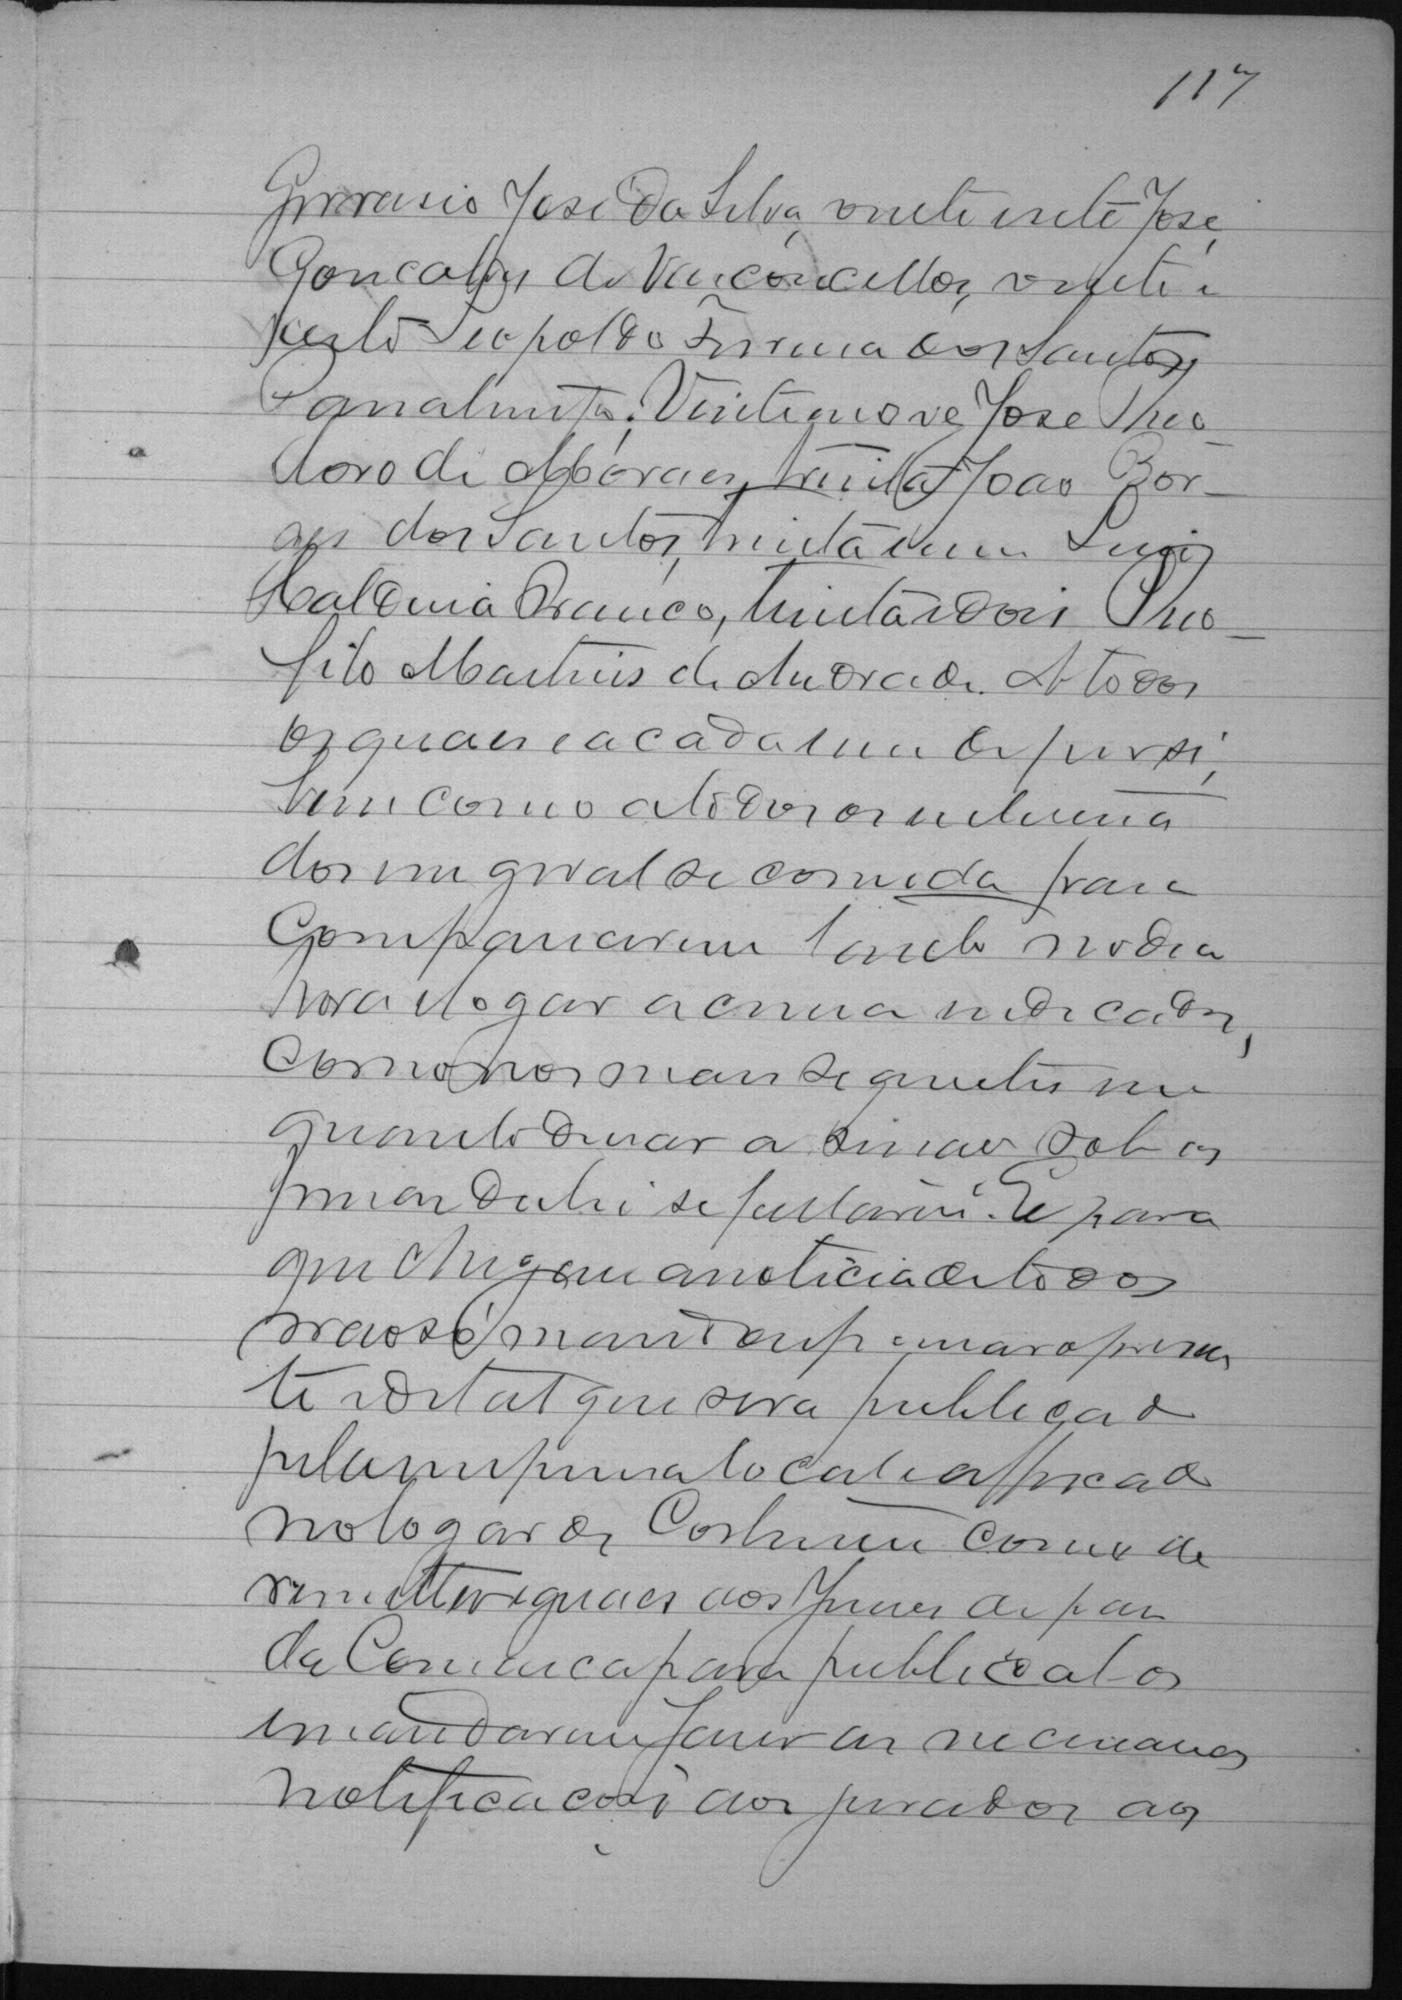 117
Gervasio José da Silva, vinte e sete José
Gonçalves de Vasconcellos, vinte e
oito Leopoldo Ferreira dos Santos
Vinte e nove José Theo-
doro de Moraes, trinta João Bor-
ges dos Santos, trinta e um Luiz
Caldeira Branco, trinta e dois Theo-
filo Martins de Andrade. A todos
os quaes e a cada um de per si,
bem como a todos os interessa
dos em geral se convida para
comparecerem tanto no dia
hora e logar acima indicados,
como nos mais seguintes em
quanto durar a sessão sob as
penas da lei se faltarem. E para
que chegue a noticia de todos
mandou-se passar o presen
te edital que será publicado
pela imprensa local e affixado
no logar do Costume como de
remetter iguaes aos Juizes de paz
da Comarca para publical-os
e mandarem fazer as necessarias
notificações aos jurados aos